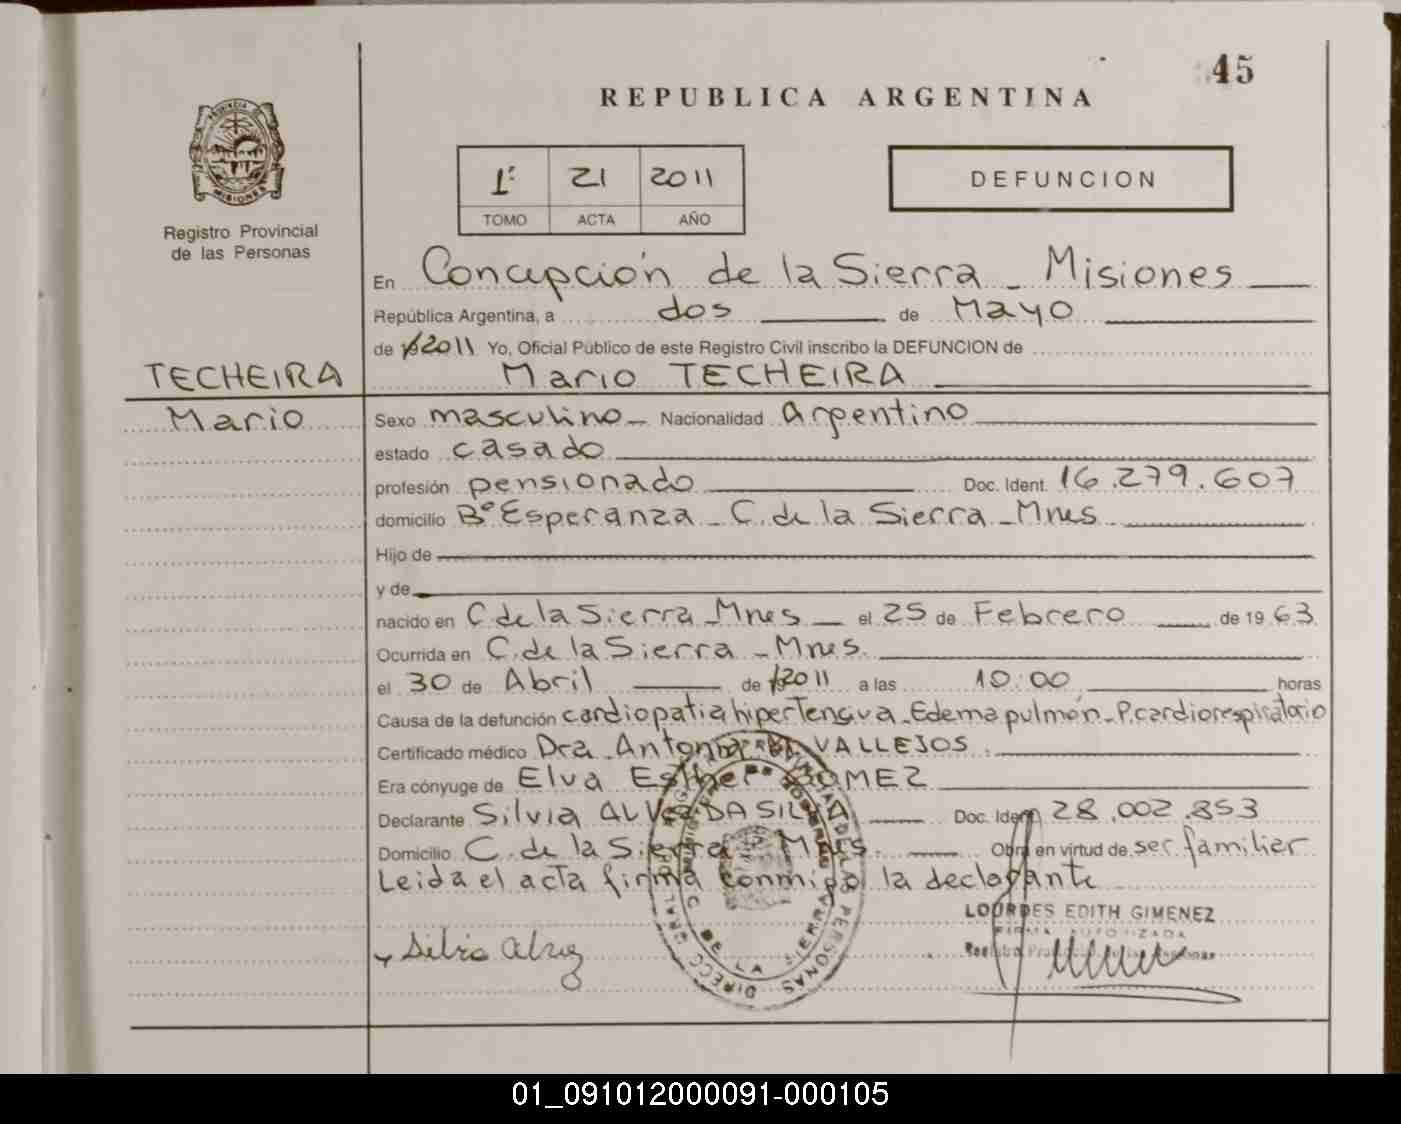 45
REPUBLICA ARGENTINA
PROVINCIA DE
MISIONES
Registro Provincial
de las Personas
1º 21 2011
TOMO ACTA AÑO
DEFUNCION
En Concepción de la Sierra - Misiones
República Argentina, a dos de Mayo
de 2011 Yo, Oficial Público de este Registro Civil inscribo la DEFUNCION de
TECHEIRA
Mario TECHEIRA
Mario
Sexo masculino - Nacionalidad Argentino
estado casado
profesión pensionado Doc. Ident. 16.279.607
domicilio Bº Esperanza - C. de la Sierra - Mnes
Hijo de
y de
nacido en C. de la Sierra - Mnes el 25 de Febrero de 1963
Ocurrida en C. de la Sierra - Mnes.
el 30 de Abril de 2011 a las 10:00 horas
Causa de la defunción cardiopatia hipertensiva - Edema pulmón - P. cardiorespiratorio
Certificado médico Dra. Antonia VALLEJOS.
Era cónyuge de Elva Esther GOMEZ
Declarante Silvia ALVEZ DA SILVA Doc. Ident. 28.002.853
Domicilio C. de la Sierra - Mnes. Obra en virtud de ser familiar
Leida el acta firma conmigo la declarante
LOURDES EDITH GIMENEZ
FIRMA AUTORIZADA
Registro Provincial de las Personas
Silvia Alvez
DIRECC. GRAL. PERSONAS
DE LA SIERRA
01_091012000091-000105